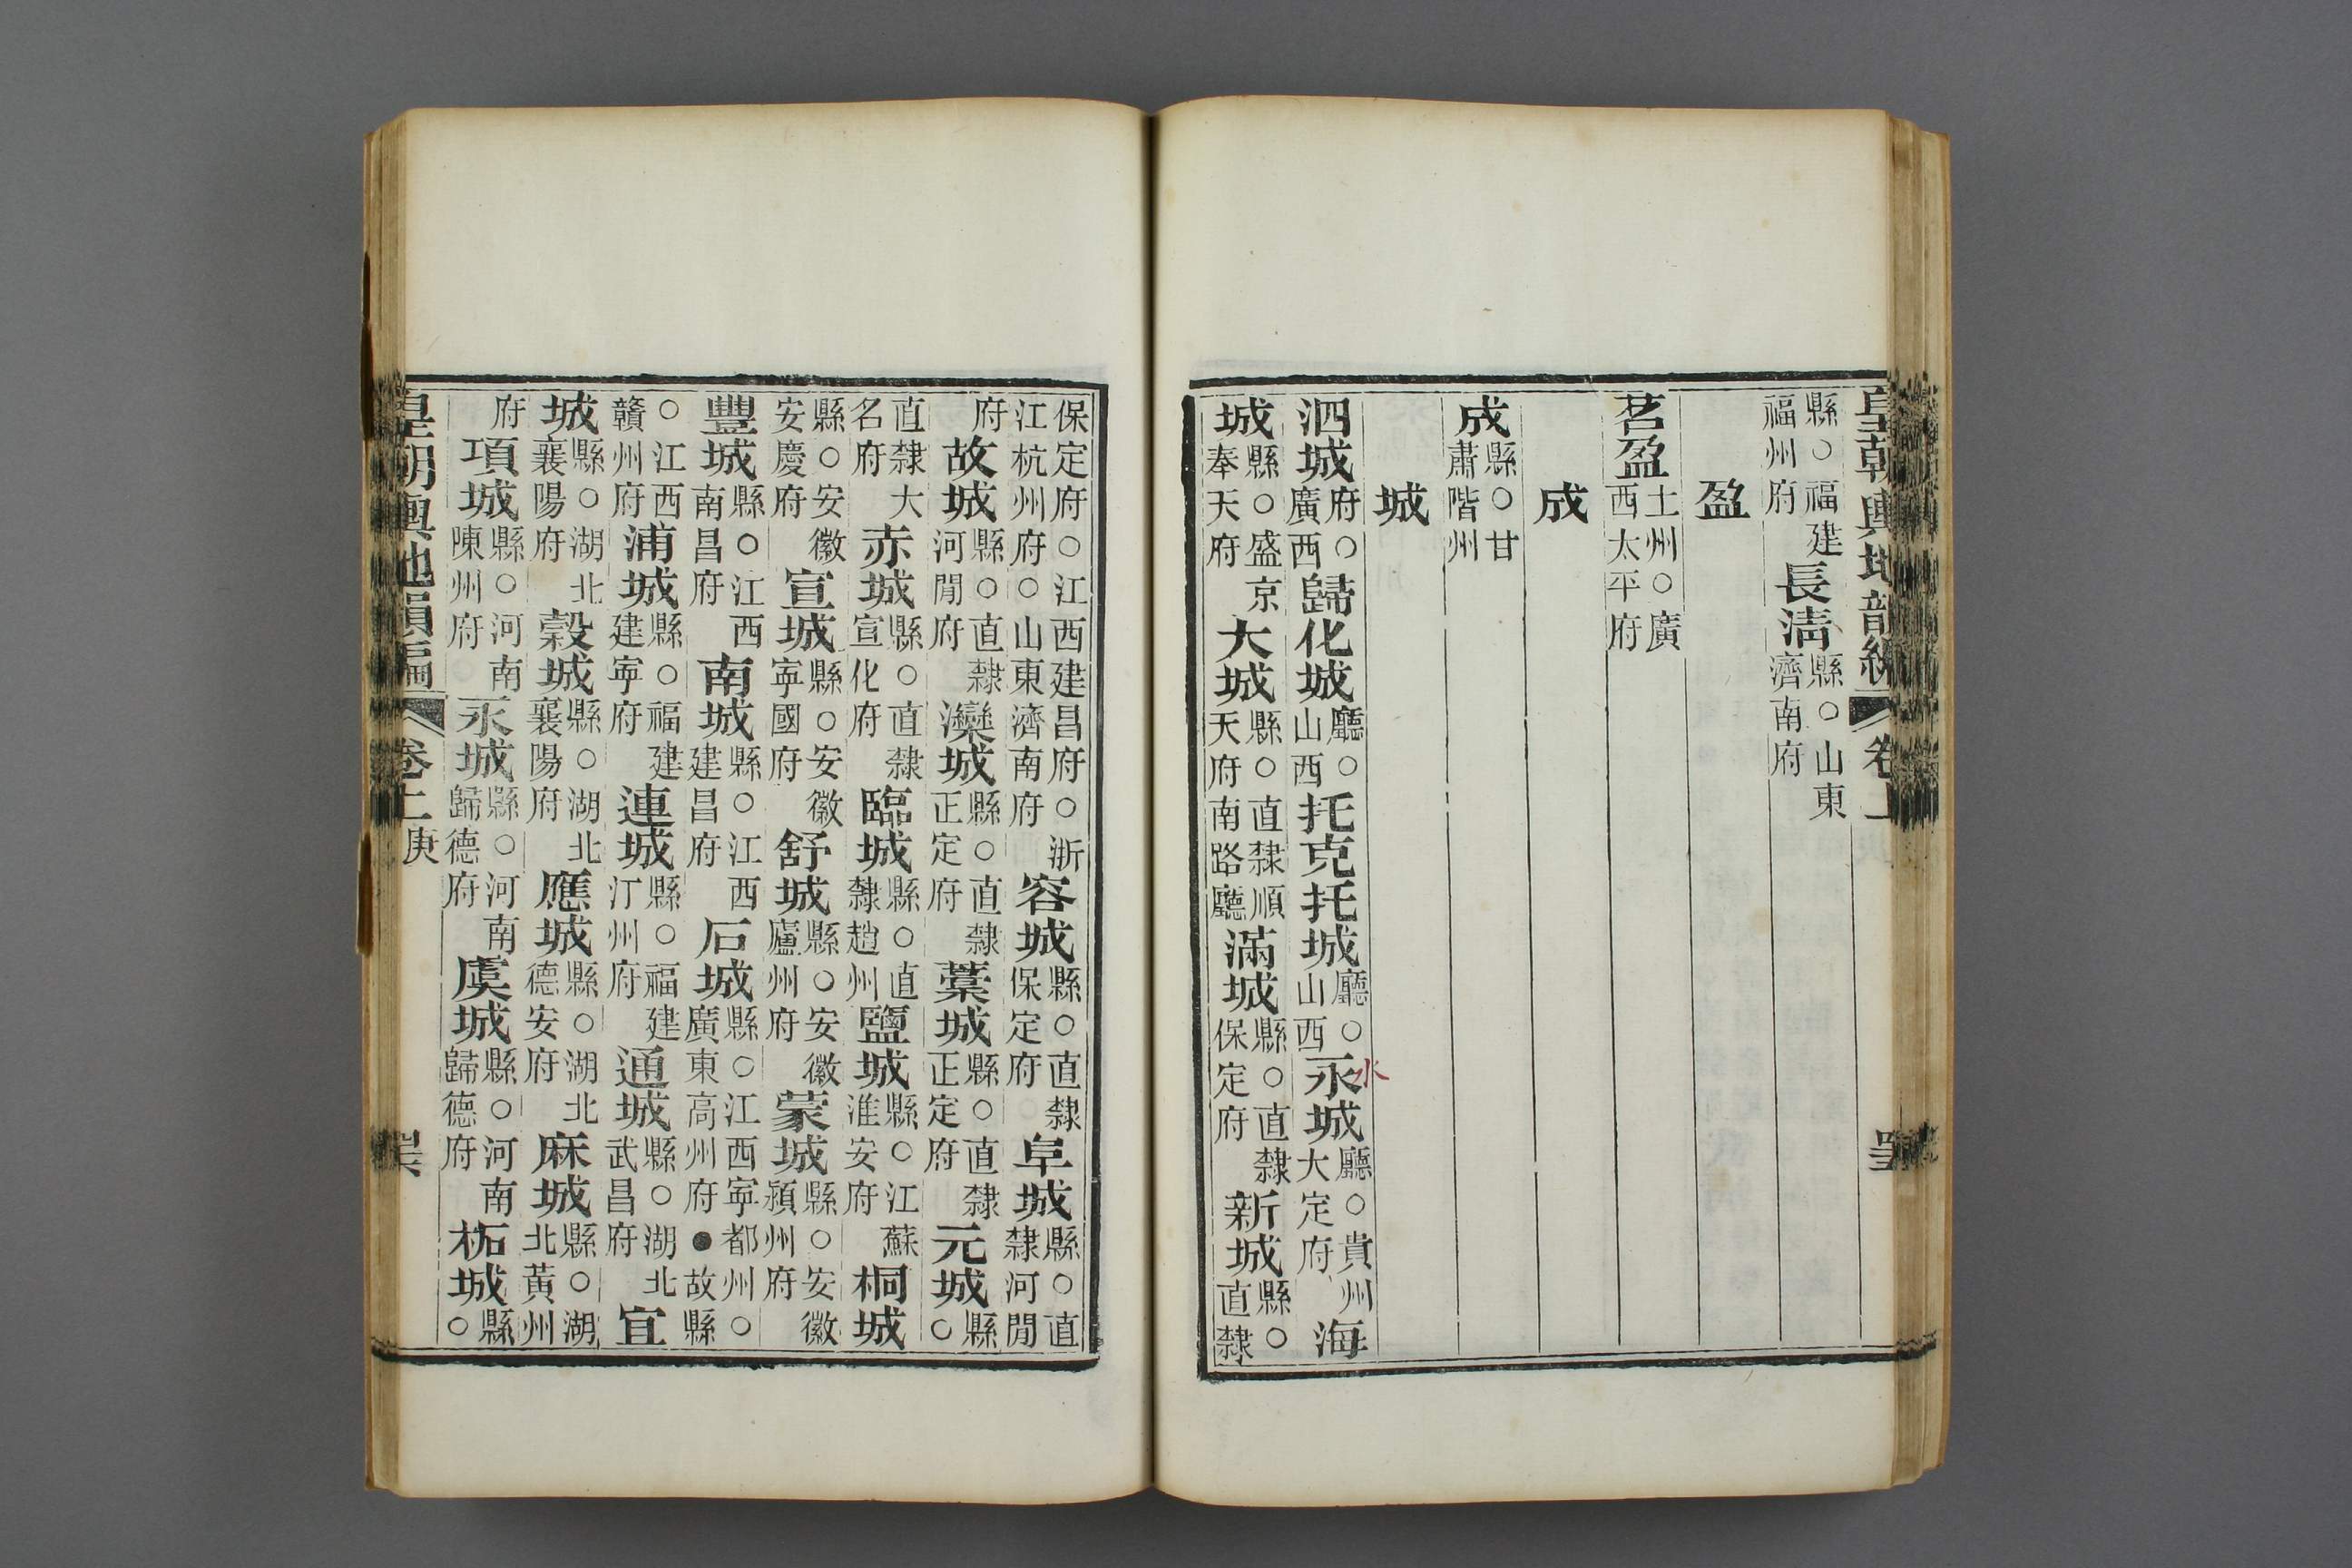 皇朝輿地韻編 卷上
縣○福建福州府長清縣○山東濟南府
盈
茗盈土州○廣西太平府
成
成縣○甘肅階州
城
泗城府○廣西歸化城廳○山西托克托城廳○山西永城廳○貴州大定府海
水
城縣○盛京奉天府大城縣○直隸順天府南路廳滿城縣○直隸保定府新城縣○直隸
保定府○江西建昌府○浙江杭州府○山東濟南府容城縣○直隸保定府阜城縣○直隸河閒
府故城縣○直隸河閒府灤城縣○直隸正定府藁城縣○直隸正定府元城縣○
直隸大名府赤城縣○直隸宣化府臨城縣○直隸趙州鹽城縣○江蘇淮安府桐城
縣○安徽安慶府宣城縣○安徽寧國府舒城縣○安徽廬州府蒙城縣○安徽潁州府
豐城縣○江西南昌府南城縣○江西建昌府石城縣○江西寧都州○廣東高州府●故縣
○江西贛州府浦城縣○福建建寧府連城縣○福建汀州府通城縣○湖北武昌府宜
城縣○湖北襄陽府穀城縣○湖北襄陽府應城縣○湖北德安府麻城縣○湖北黃州
府項城縣○河南陳州府永城縣○河南歸德府虞城縣○河南歸德府柘城縣○
皇朝輿地韻編 卷上 庚